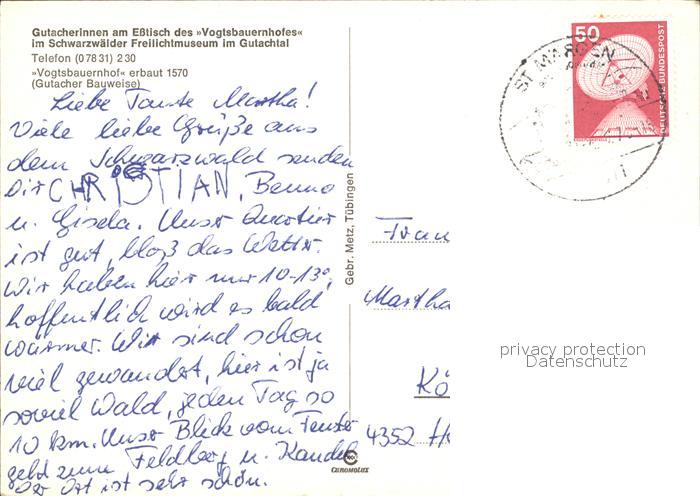 Gutacherinnen am Eßtisch des »Vogtsbauernhofes«
im Schwarzwälder Freilichtmuseum im Gutachtal
Telefon (0 78 31) 2 30
»Vogtsbauernhof« erbaut 1570
(Gutacher Bauweise)
Liebe Tante Martha!
Viele liebe Grüße aus
dem Schwarzwald senden
Dir CHRISTIAN, Benno
u. Gisela. Unser Quartier
ist gut, bloß das Wetter.
Wir haben hier nur 10-13°,
hoffentlich wird es bald
wärmer. Wir sind schon
viel gewandert, hier ist ja
soviel Wald, jeden Tag so
10 km. Unser Blick vom Fenster
geht zum Feldberg u. Kandel
Der Ort ist sehr schön.
Gebr. Metz, Tübingen
CHROMOLUX
50
DEUTSCHE BUNDESPOST
ST. MÄRGEN
Frau
Martha
Kö
4352 H
privacy protection
Datenschutz